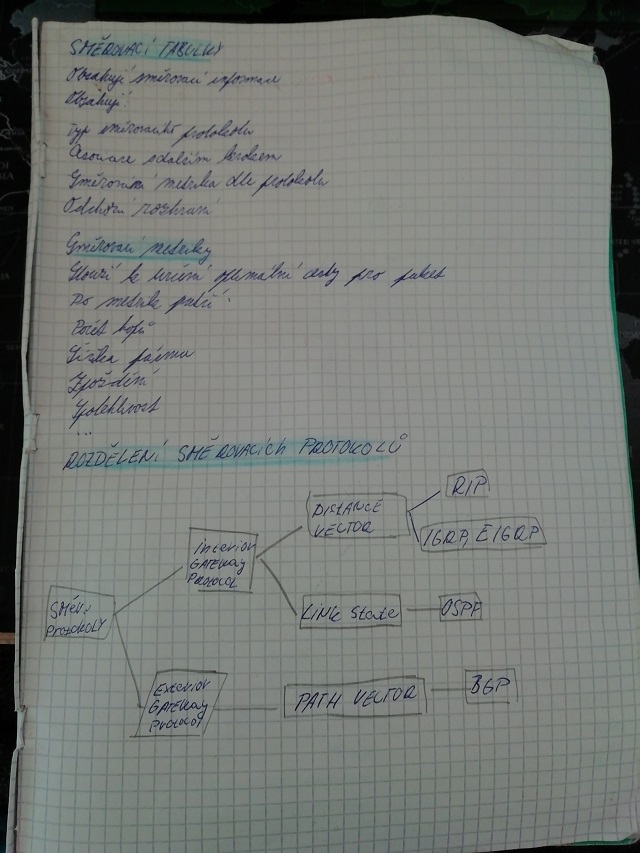 SMĚROVACÍ TABULKY
Obsahují směrovací informace
Obsahují:
Typ směrovacího protokolu
Asociace s dalším krokem
Směrovací metrika dle protokolu
Odchozí rozhraní
Směrovací metriky
Slouží k určení optimální cesty pro paket
Do metrik patří:
Počet hopů
Šířka pásma
Zpoždění
Spolehlivost
...
ROZDĚLENÍ SMĚROVACÍCH PROTOKOLŮ
SMĚR.
PROTOKOLY
INTERIOR
GATEWAY
PROTOCOL
DISTANCE
VECTOR
RIP
IGRP, EIGRP
LINK State
OSPF
EXTERIOR
GATEWAY
PROTOCOL
PATH VECTOR
BGP